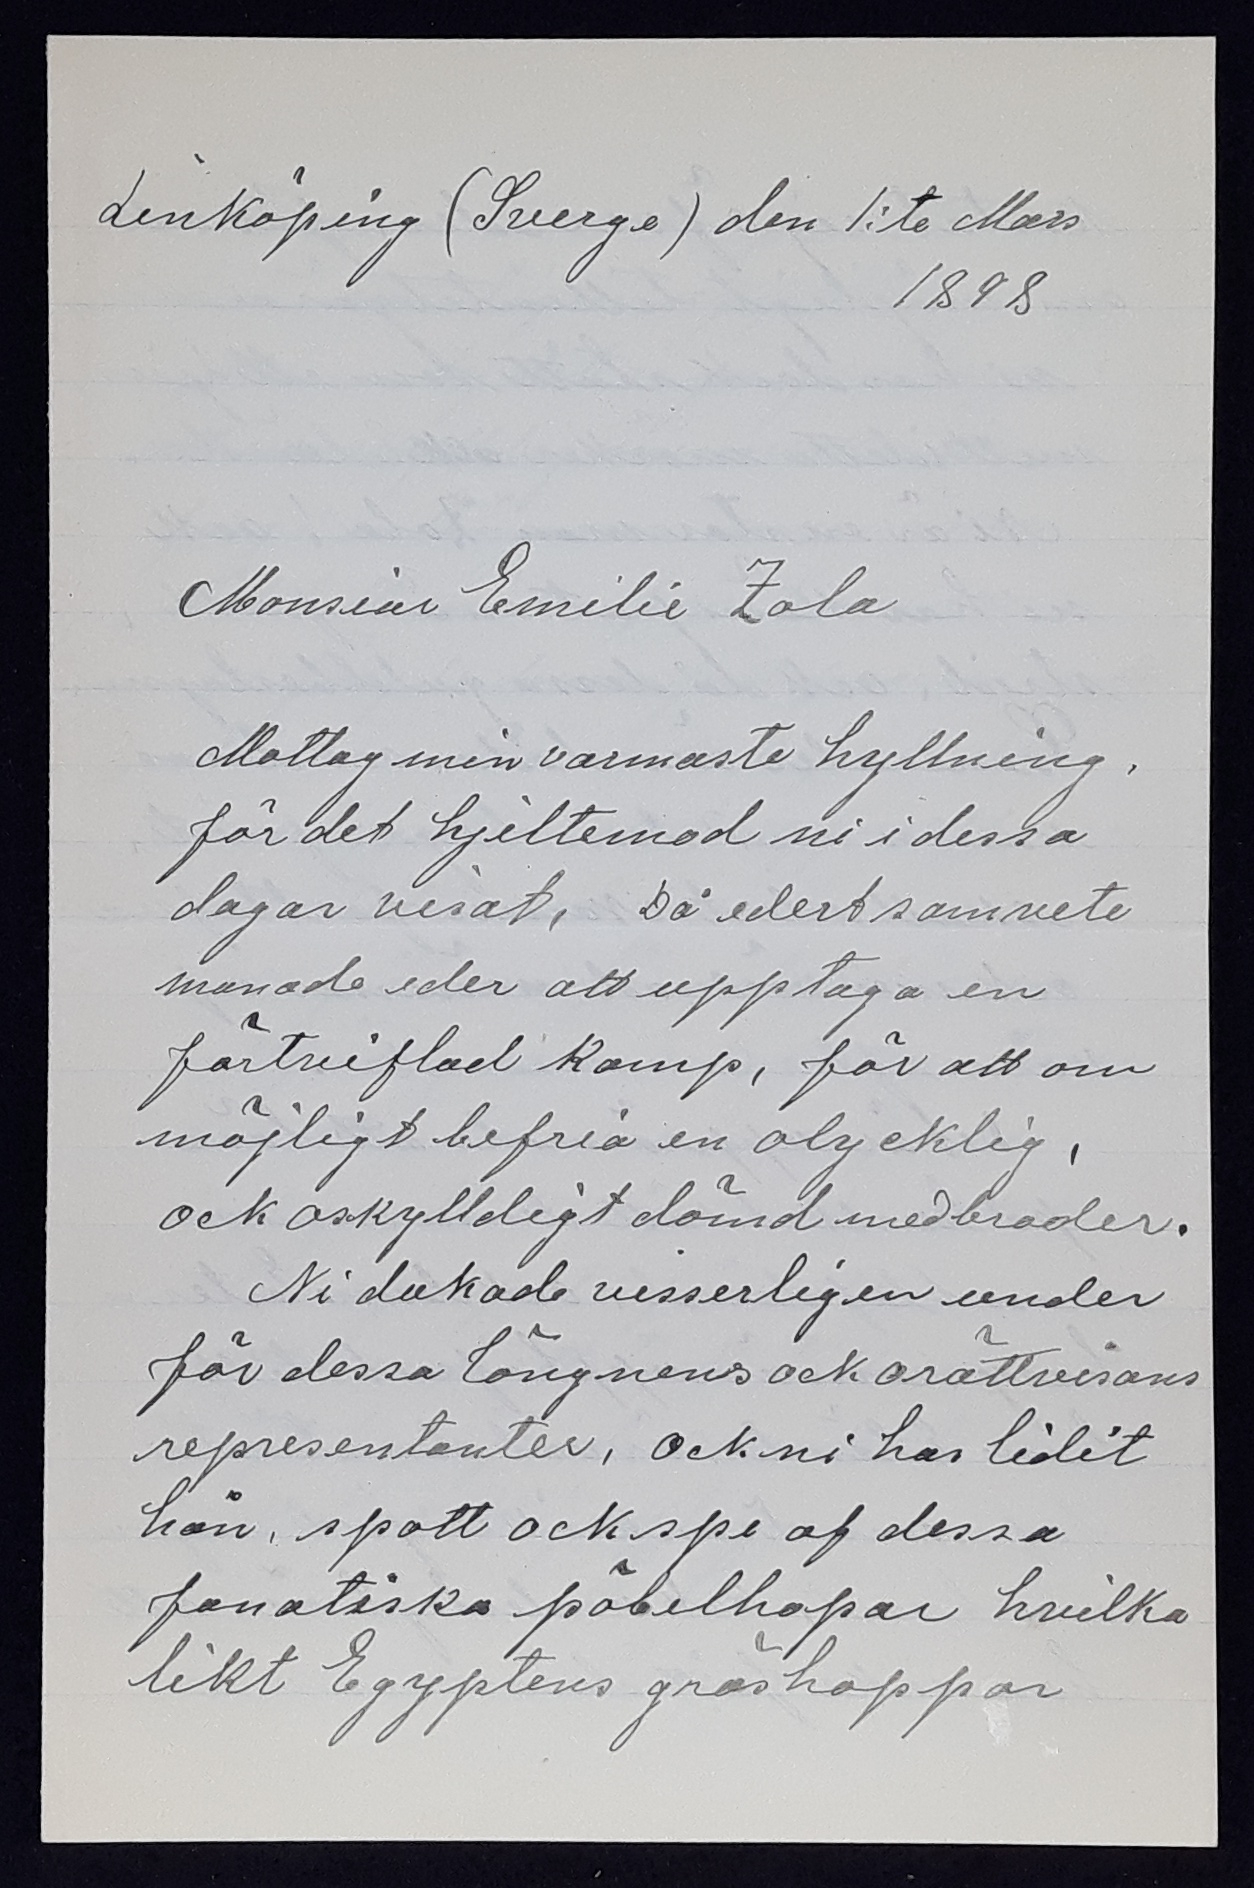 Linköping (Sverge) den 1:te Mars
1898
Monsiör Emilie Zola
Mottag min varmaste hyllning,
för det hjeltemod ni i dessa
dagar visat, Då edert samvete
manade eder att upptaga en
förtviflad kamp, för att om
möjligt befria en olycklig,
ock oskylldigt dömd medbroder.
Ni dukade visserligen under
för dessa lögnens ock orättvisans
representanter, ock ni har lidit
hån, spott ock spe af dessa
fanatiska pöbelhopar hvilka
likt Egyptens gräshoppor